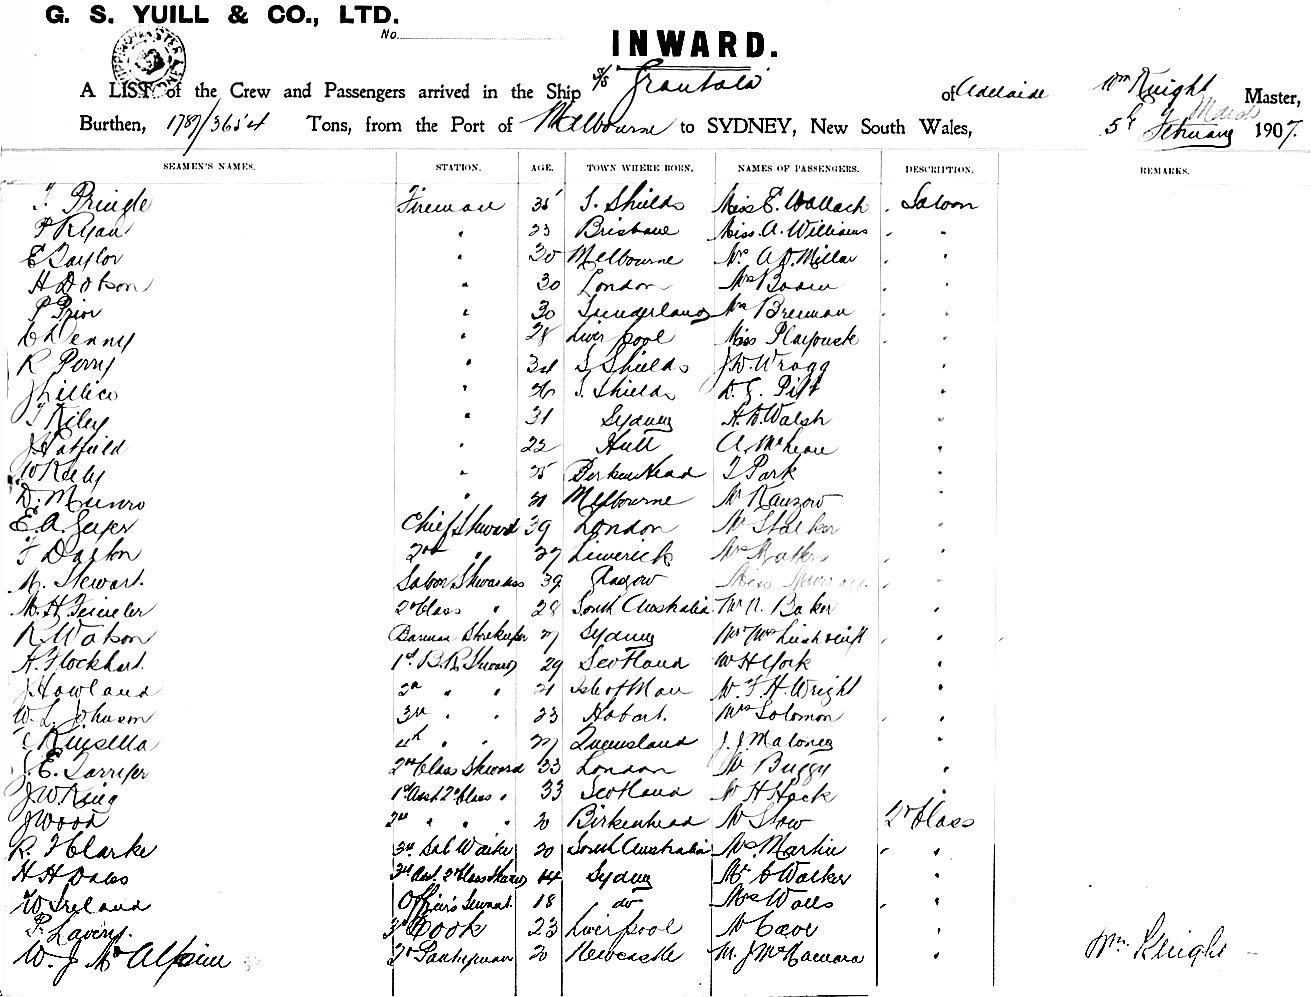 G. S. YUILL & CO., LTD.
No.
INWARD.
A LIST of the Crew and Passengers arrived in the Ship S/S Grantala of Adelaide Wm Knight Master,
Burthen, 1787/3654 Tons, from the Port of Melbourne to SYDNEY, New South Wales, 5th February March 1907.
SEAMEN'S NAMES. STATION. AGE. TOWN WHERE BORN. NAMES OF PASSENGERS. DESCRIPTION. REMARKS.
T. Pringle Fireman 35 S. Shields Miss E. Wallach Saloon
P Ryan " 23 Brisbane Miss A. Williams "
E Taylor " 30 Melbourne A D. Millar "
H Dobson " 30 London Mrs "
P Prior " 30 Sunderland Brennan "
Denny " 28 Liverpool Miss "
R Perry " 34 S Shields J. W. Wragg "
J Lillico " 26 S. Shields Pitt "
T Riley " 31 Sydney H. W. Walsh "
J Hatfield " 22 Hull A. McLean "
W Kelly " 25 Birkenhead T Park "
D. Munro " Melbourne Mr Ranzow "
E. A. Chief Steward 39 London Mr Stalker "
F Dalton 2nd " 27 Limerick "
M. Stewart. Saloon Stewardess 39 Glasgow Miss "
M. H. 2nd Class " 28 South Australia Mr N. Baker "
R Watson Barman Storekeeper 27 Sydney Mr Mrs "
H. Flockhart. 1st B. R. Steward 29 Scotland W H York "
J Howland 2nd " " 21 Isle of Man W. F. H. Wright "
W. L. Johnson 3rd " " 23 Hobart. Mrs Solomon "
Kinsella 4th " " 27 Queensland J. J Maloney "
J. E. 2nd Class Steward 33 London Mr Buggy "
J W King 1st Asst 2nd Class " 33 Scotland H Hack "
J Wood 2nd " " " 20 Birkenhead Mr Slow 2nd Class
R. F Clarke 3rd Sal Waiter 20 South Australia Mrs Martin "
H H Oakes 3rd Asst. 2nd Class Steward Sydney Mr C Walker "
W Ireland Officers Servant. 18 do Mrs Walls "
P. Lavery. 3rd Cook 23 Liverpool Mr Cave "
W. J. McAlpine 2nd Pantryman 20 Newcastle M. J McNamara " Wm. Knight